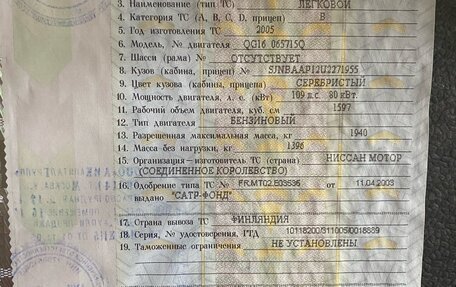 3. Наименование (тип ТС) ЛЕГКОВОЙ
4. Категория ТС (А, В, С, D, прицеп) В
5. Год изготовления ТС 2005
6. Модель, № двигателя QG16 065715Q
7. Шасси (рама) № ОТСУТСТВУЕТ
8. Кузов (кабина, прицеп) № SJNBAAP12U2271955
9. Цвет кузова (кабины, прицепа) СЕРЕБРИСТЫЙ
10. Мощность двигателя, л. с. (кВт) 109 л.с. 80 кВт.
11. Рабочий объем двигателя, куб. см 1597
12. Тип двигателя БЕНЗИНОВЫЙ
13. Разрешенная максимальная масса, кг 1940
14. Масса без нагрузки, кг 1396
15. Организация—изготовитель ТС (страна) НИССАН МОТОР
(СОЕДИНЕННОЕ КОРОЛЕВСТВО)
16. Одобрение типа ТС № FR.MT02.E03536 от 11.04.2003
выдано "САТР-ФОНД"
17. Страна вывоза ТС ФИНЛЯНДИЯ
18. Серия, № удостоверения, ГТД 10118200/311005/0018889
19. Таможенные ограничения НЕ УСТАНОВЛЕНЫ